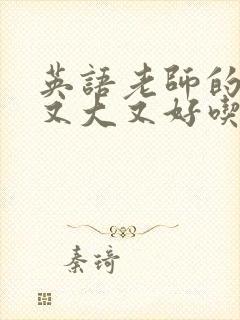 英語老師的
又大又好喫
秦琦